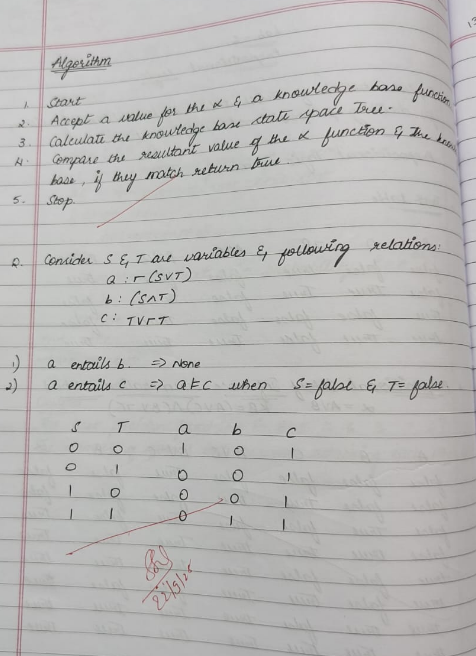 Algorithm
1. Start
2. Accept a value for the α & a knowledge base function
3. Calculate the knowledge base state space Tree.
4. Compare the resultant value of the α function & The
base, if they match return true
5. Stop.
Q. Consider S & T are variables & following relations:
a : r (S∨T)
b : (S∧T)
C : T∨rT
1) a entails b. => None
2) a entails c => a⊨C when S = false & T = false.
S T a b C
0 0 1 0 1
0 1 0 0 1
1 0 0 0 1
1 1 0 1 1